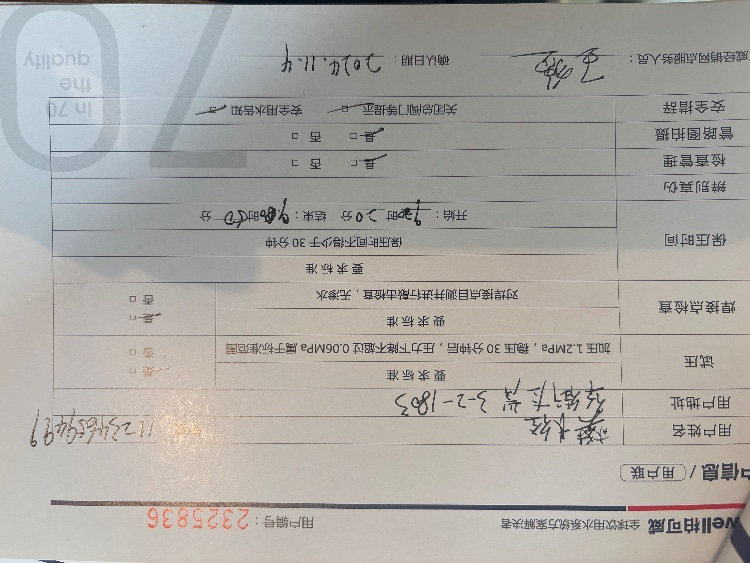 well柏可威 全球饮用水系统方案解决者 用户编号：2325836
户信息 / 用户联
用户姓名
用户地址 3-2-1803
试压 要求标准 是
加压 1.2MPa，稳压 30 分钟后，压力下降不超过 0.06MPa 属于标准范围 否
焊接点检查 要求标准 是
对焊接点目测并进行敲击检查，无渗水 否
保压时间 要求标准
保压时间不得少于 30 分钟
开始： 时 20 分 结束： 时 50 分
辨别真伪
检查管理 是 否
管路图拍摄 是 否
安全措辞 关闭总阀门等提示 安全用水告知
威经销网点服务人员： 确认日期：2024.11.4
in 70
the
quality
70